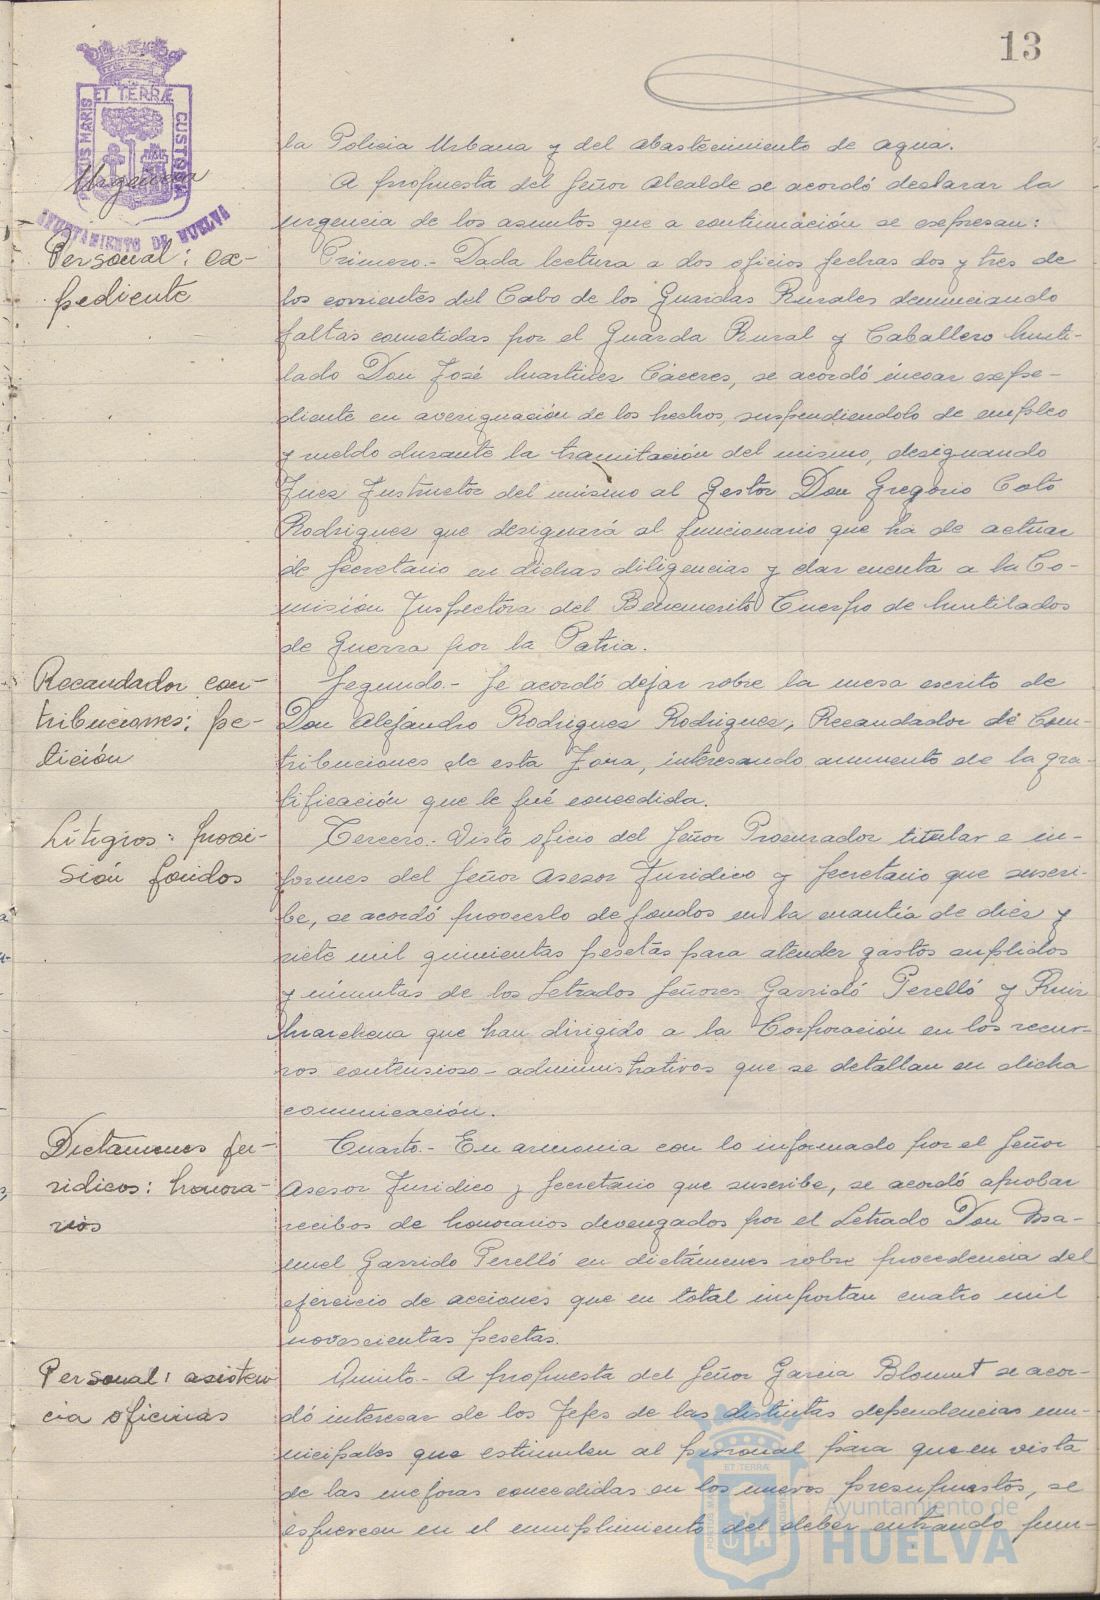 13
PORTUS MARIS ET TERRÆ CUSTODIA
AYUNTAMIENTO DE HUELVA
la Policia Urbana y del abastecimiento de agua.
Urgencia
A propuesta del Señor Alcalde se acordó declarar la
urgencia de los asuntos que a continuación se expresan:
Personal: ex-
pediente
Primero.- Dada lectura a dos oficios fechas dos y tres de
los corrientes del Cabo de los Guardas Rurales denunciando
faltas cometidas por el Guarda Rural y Caballero Muti-
lado Don José Martinez Cáceres, se acordó incoar expe-
diente en averiguación de los hechos, suspendiendolo de empleo
y sueldo durante la tramitación del mismo, designando
Juez Instructor del mismo al Gestor Don Gregorio Coto
Rodriguez que designará al funcionario que ha de actuar
de Secretario en dichas diligencias y dar cuenta a la Co-
misión Inspectora del Benemerito Cuerpo de Mutilados
de Guerra por la Patria.
Recaudador con-
tribuciones: pe-
tición
Segundo.- Se acordó dejar sobre la mesa escrito de
Don Alejandro Rodriguez Rodriguez, Recaudador de Con-
tribuciones de esta Zona, interesando aumento de la gra-
tificación que le fué concedida.
Litigios: provi-
sión fondos
Tercero.- Visto oficio del Señor Procurador titular e in-
formes del Señor Asesor Juridico y Secretario que suscri-
be, se acordó proveerlo de fondos en la cuantía de diez y
siete mil quinientas pesetas para atender gastos suplidos
y minutas de los Letrados Señores Garrido Perelló y Ruiz
Marchena que han dirigido a la Corporación en los recur-
sos contencioso-administrativos que se detallan en dicha
comunicación.
Dictamenes ju-
ridicos: honora-
rios
Cuarto.- En armonia con lo informado por el Señor
Asesor Juridico y Secretario que suscribe, se acordó aprobar
recibos de honorarios devengados por el Letrado Don Ma-
nuel Garrido Perelló en dictámenes sobre procedencia del
ejercicio de acciones que en total importan cuatro mil
novecientas pesetas.
Personal: asisten-
cia oficinas
Quinto.- A propuesta del Señor Garcia Blount se acor-
dó interesar de los Jefes de las distintas dependencias mu-
nicipales que estimulen al personal para que en vista
de las mejoras concedidas en los nuevos presupuestos, se
esfuercen en el cumplimiento del deber entrando pun-
Ayuntamiento de
HUELVA